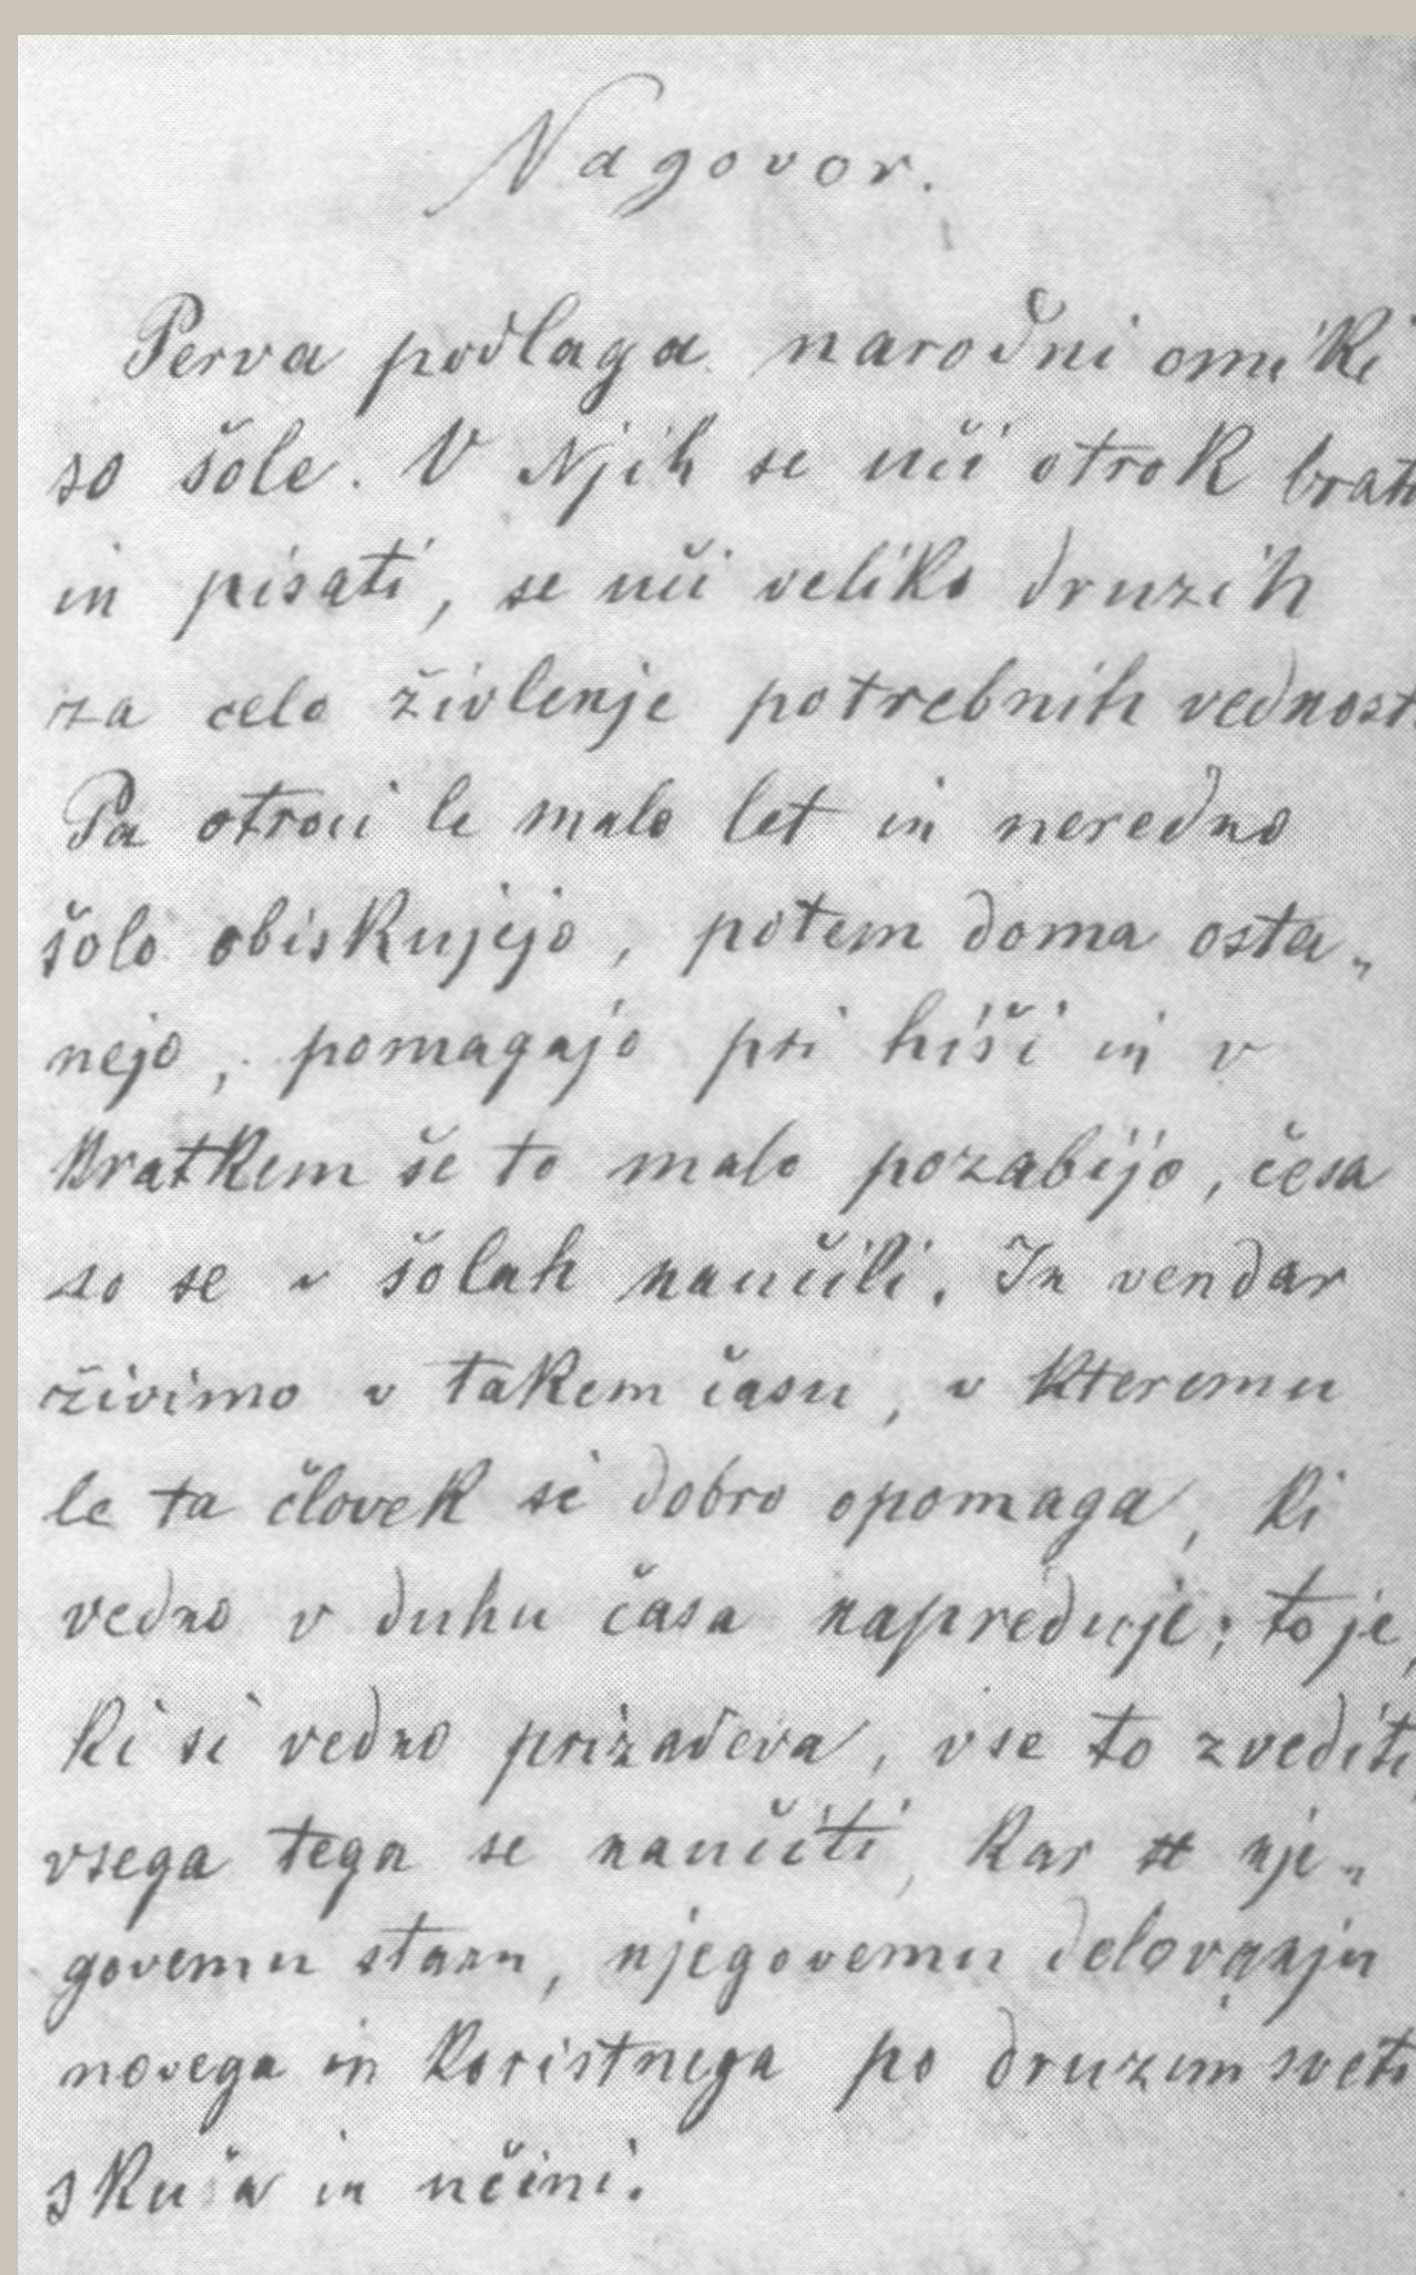 Nagovor.
Perva podlaga narodni omiki
so šole. V Njih se uči otrok brati
in pisati, se uči veliko druzih
za celo živlenje potrebnih vednost
Pa otroci le malo let in neredno
šolo obiskujejo, potem doma osta„
nejo, pomagajo pri hiši in v
kratkem še to malo pozabijo, česa
so se v šolah naučili. In vendar
živimo v takem času, v kteremu
le ta človek si dobro opomaga, ki
vedno v duhu časa napreduje; to je,
ki si vedno prizadeva, vse to zvediti,
vsega tega se naučiti, kar nje„
govemu stanu, njegovemu delovanju
novega in koristnega po druzem sveti
skuša in učini.